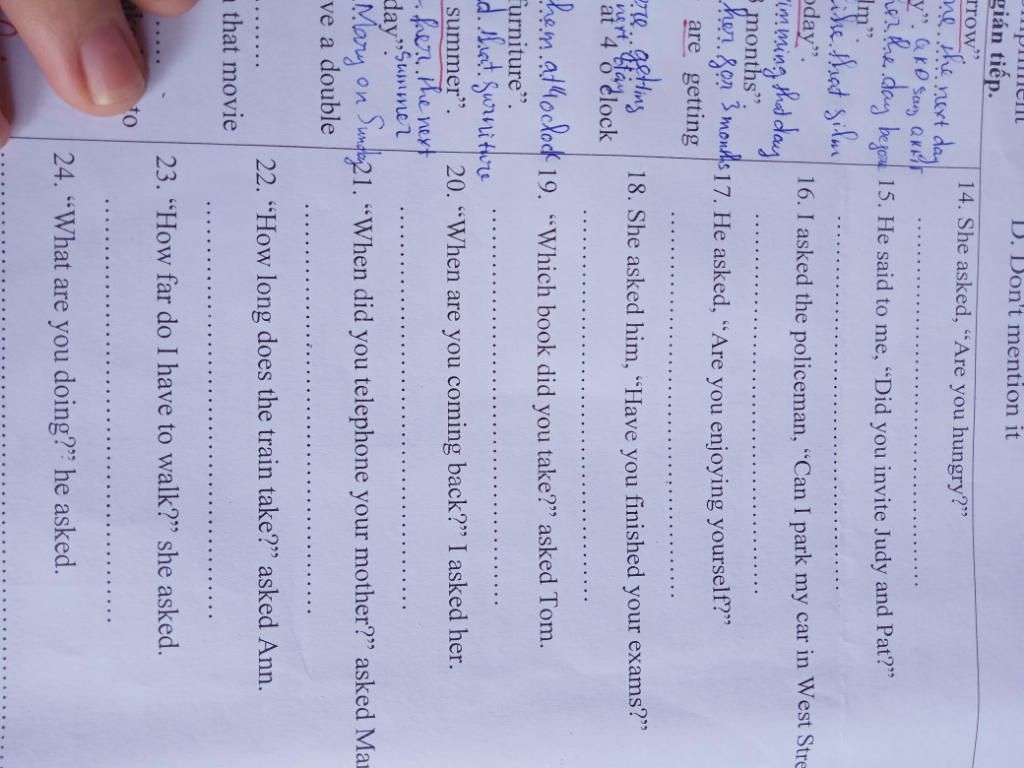 D. Don't mention it
gián tiếp.
the next day
her the day before
like that film
oday”.
imming that day
3 months”
her son 3 months
are geting
ere getting
next day
at 4 o'clock
hem at 4 o'clock
furniture”.
d that furniture
summer”.
her the next
summer
day”
Mary on Sunday
ve a double
that movie
to
14. She asked, “Are you hungry?”
15. He said to me, “Did you invite Judy and Pat?”
16. I asked the policeman, “Can I park my car in West Stre
17. He asked, “Are you enjoying yourself?”
18. She asked him, “Have you finished your exams?”
19. “Which book did you take?” asked Tom.
20. “When are you coming back?” I asked her.
21. “When did you telephone your mother?” asked Mar
22. “How long does the train take?” asked Ann.
23. “How far do I have to walk?” she asked.
24. “What are you doing?” he asked.